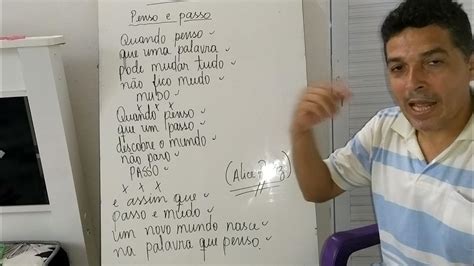 Penso e passo
Quando penso
que uma palavra
pode mudar tudo
não fico mudo
MUDO
x x x
Quando penso
que um passo
discobre o mundo
não paro
PASSO
x x x
e assim que
passo e mudo
um novo mundo nasce
na palavra que penso
(Alice Ruiz)